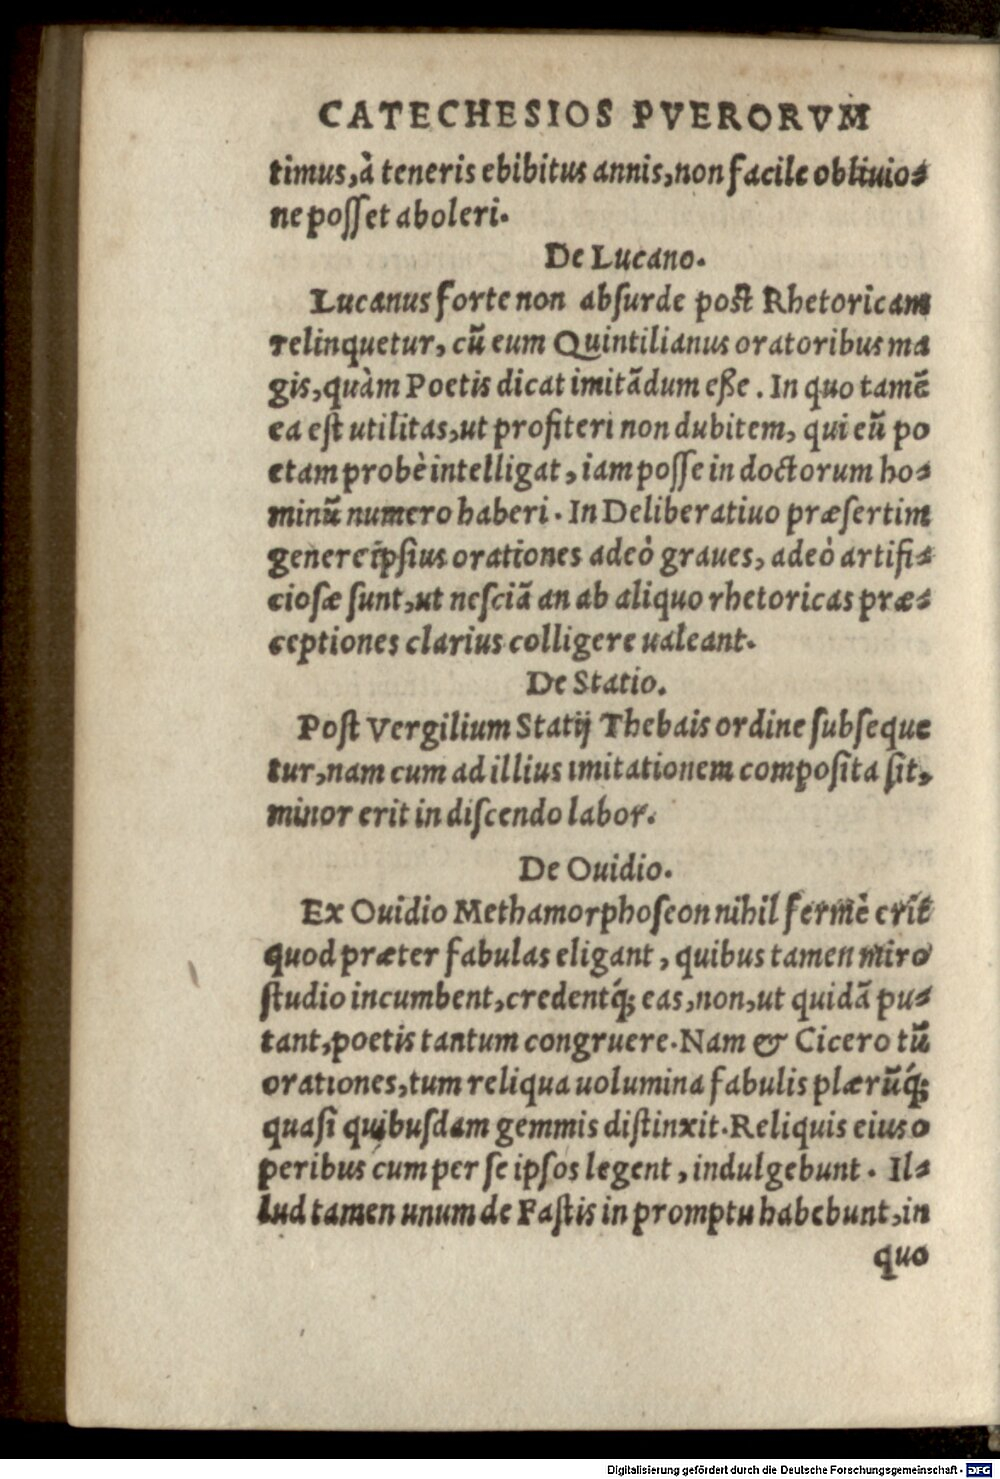 CATECHESIOS PVERORVM
timus, à teneris ebibitus annis, non facile obliuio-
ne posset aboleri.
De Lucano.
Lucanus forte non absurde post Rhetoricam
relinquetur, cũ eum Quintilianus oratoribus ma
gis, quàm Poetis dicat imitãdum eße. In quo tamẽ
ea est utilitas, ut profiteri non dubitem, qui eũ po
etam probè intelligat, iam posse in doctorum ho-
minũ numero haberi. In Deliberatiuo præsertim
genere ipsius orationes adeò graues, adeò artifi-
ciosæ sunt, ut nesciã an ab aliquo rhetoricas præ-
ceptiones clarius colligere ualeant.
De Statio.
Post Vergilium Statij Thebais ordine subseque
tur, nam cum ad illius imitationem composita sit,
minor erit in discendo labor.
De Ouidio.
Ex Ouidio Methamorphoseon nihil fermè erit
quod præter fabulas eligant, quibus tamen miro
studio incumbent, credentq́; eas, non, ut quidã pu-
tant, poetis tantum congruere. Nam & Cicero tũ
orationes, tum reliqua uolumina fabulis plærũq́;
quasi quibusdam gemmis distinxit. Reliquis eius o
peribus cum per se ipsos legent, indulgebunt. Il-
lud tamen unum de Fastis in promptu habebunt, in
quo
Digitalisierung gefördert durch die Deutsche Forschungsgemeinschaft - DFG